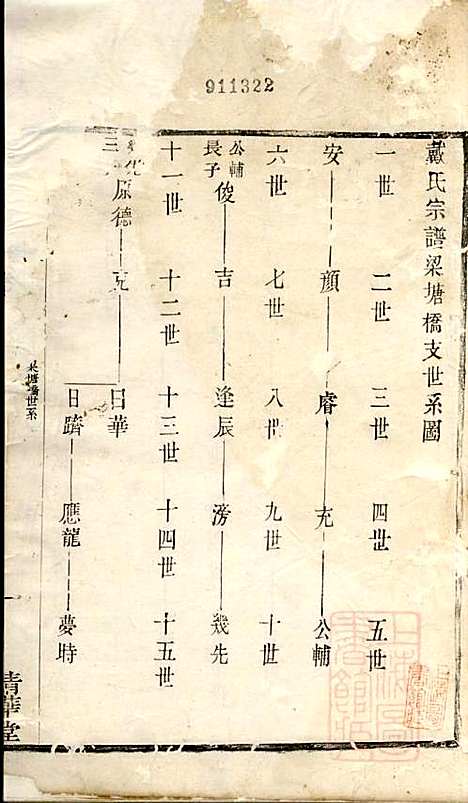 911322
戴氏宗譜梁塘橋支世系圖
一世 二世 三世 四世 五世
安 顏 睿 充 公輔
六世 七世 八世 九世 十世
公輔長子 俊 吉 逢辰 滂 幾先
十一世 十二世 十三世 十四世 十五世
原德 克 日華
日躋 應龍 夢時
梁塘橋世系
清華堂